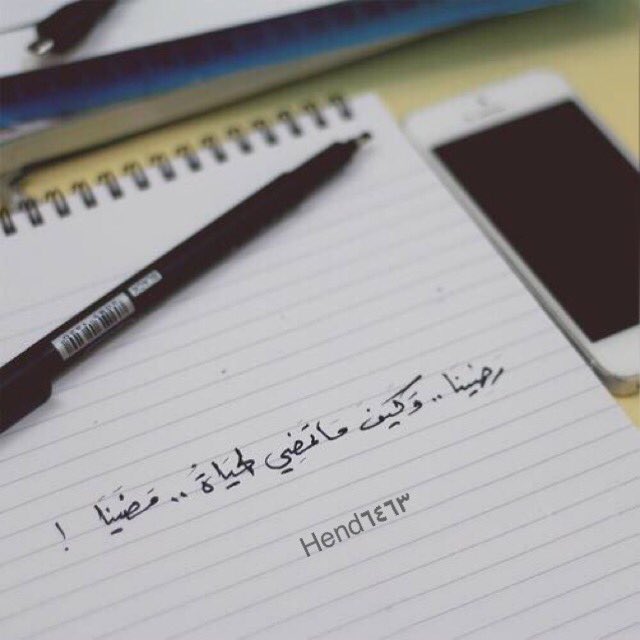 رضينا .. وكيف ما تمضي الحياة .. مضينا !
Hend٦٤٦٣